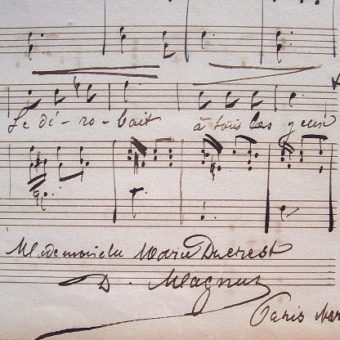 Se dé-ro-bait à tous les yeux
Mademoiselle Maria Ducrest
D. Magnus
Paris